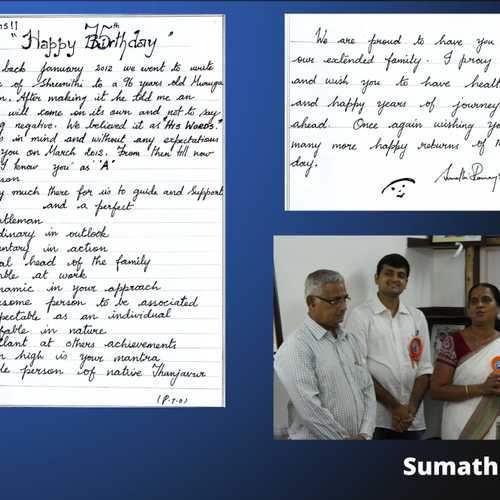 "Happy 75th Birthday"
back january 2012 we went to write
of Shrimithi to a 96 years old Muruga
After making it he told me an
will come on its own and not to say
negative. We believed it as "HIS WORDS."
in mind and without any expectations
you on March 2012. From then till now
I know you as "A"
much there for us to guide and support
and a perfect
dinary in outlook
entary in action
al head of the family
ble at work
namic in your approach
esome person to be associated
pectable as an individual
fable in nature
lant at others achievements
high is your mantra
de person of native Thanjavur
(P.T.O)
We are proud to have you
our extended family. I pray
and wish you to have heal
and happy years of journey
ahead. Once again wishing yo
many more happy returns of
day.
Sumath